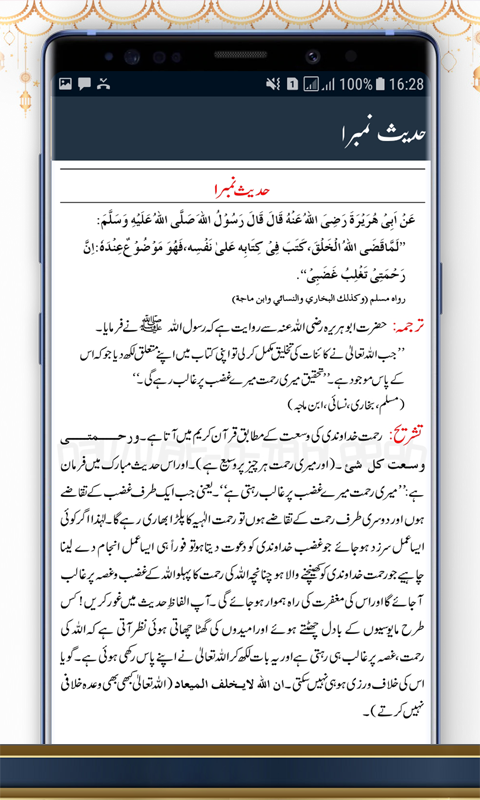 100% 16:28
حدیث نمبرا
حدیث نمبرا
عَنْ اَبِیْ هُرَیْرَةَ رَضِیَ اللهُ عَنْهُ قَالَ قَالَ رَسُوْلُ اللهَ صَلَّی اللهُ عَلَیْهِ وَسَلَّمَ:
”لَمَّا قَضَی اللهُ الْخَلْقَ، کَتَبَ فِیْ کِتَابِه عَلیٰ نَفْسِه، فَهُوَ مَوْضُوْعٌ عِنْدَهٗ: اِنَّ
رَحْمَتِیْ تَغْلِبُ غَضَبِیْ“.
رواه مسلم (وکذلك البخاري والنسائي وابن ماجة)
ترجمہ: حضرت ابو ہریرہ رضی اللہ عنہ سے روایت ہے کہ رسول اللہ ﷺ نے فرمایا۔
”جب اللہ تعالیٰ نے کائنات کی تخلیق مکمل کر لی تو اپنی کتاب میں اپنے متعلق لکھ دیا جو کہ اس
کے پاس موجود ہے۔”تحقیق میری رحمت میرے غضب پر غالب رہے گی۔“
(مسلم، بخاری، نسائی، ابن ماجہ)
تشریح: رحمت خداوندی کی وسعت کے مطابق قرآن کریم میں آتا ہے۔ ورحـمـتـی
وسعت کل شئ۔ (اور میری رحمت ہر چیز پر وسیع ہے)۔ اور اس حدیث مبارک میں فرمان
ہے: ”میری رحمت میرے غضب پر غالب رہتی ہے“۔ یعنی جب ایک طرف غضب کے تقاضے
ہوں اور دوسری طرف رحمت کے تقاضے ہوں تو رحمت الٰہیہ کا پلڑا بھاری رہے گا۔ لہٰذا اگر کوئی
ایسا عمل سرزد ہو جائے جو غضب خداوندی کو دعوت دیتا ہو تو فوراً ہی ایسا عمل انجام دے لینا
چاہیے جو رحمت خداوندی کو کھینچنے والا ہو چنانچہ اللہ کی رحمت کا پہلو اللہ کے غضب و غصہ پر غالب
آ جائے گا اور اس کی مغفرت کی راہ ہموار ہو جائے گی۔ آپ الفاظِ حدیث میں غور کریں! کس
طرح مایوسیوں کے بادل چھٹتے ہوئے اور امیدوں کی گھٹا چھاتی ہوئی نظر آتی ہے کہ اللہ کی
رحمت، غصہ پر غالب ہی رہتی ہے اور یہ بات لکھ کر اللہ تعالیٰ نے اپنے پاس رکھی ہوئی ہے۔ گویا
اس کی خلاف ورزی ہو ہی نہیں سکتی۔ ان الله لایـخلف المیعاد (اللہ تعالیٰ کبھی بھی وعدہ خلافی
نہیں کرتے)۔